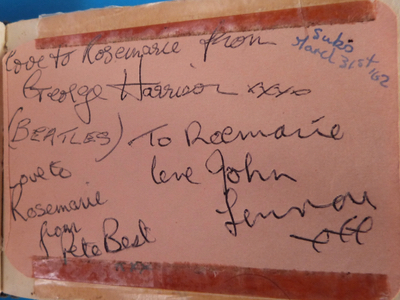 Love to Rosemarie from
George Harrison xxxo
(BEATLES)
Suko
March 31st '62
To Roemarie
love John
Lennon
Love to
Rosemarie
from
Pete Best